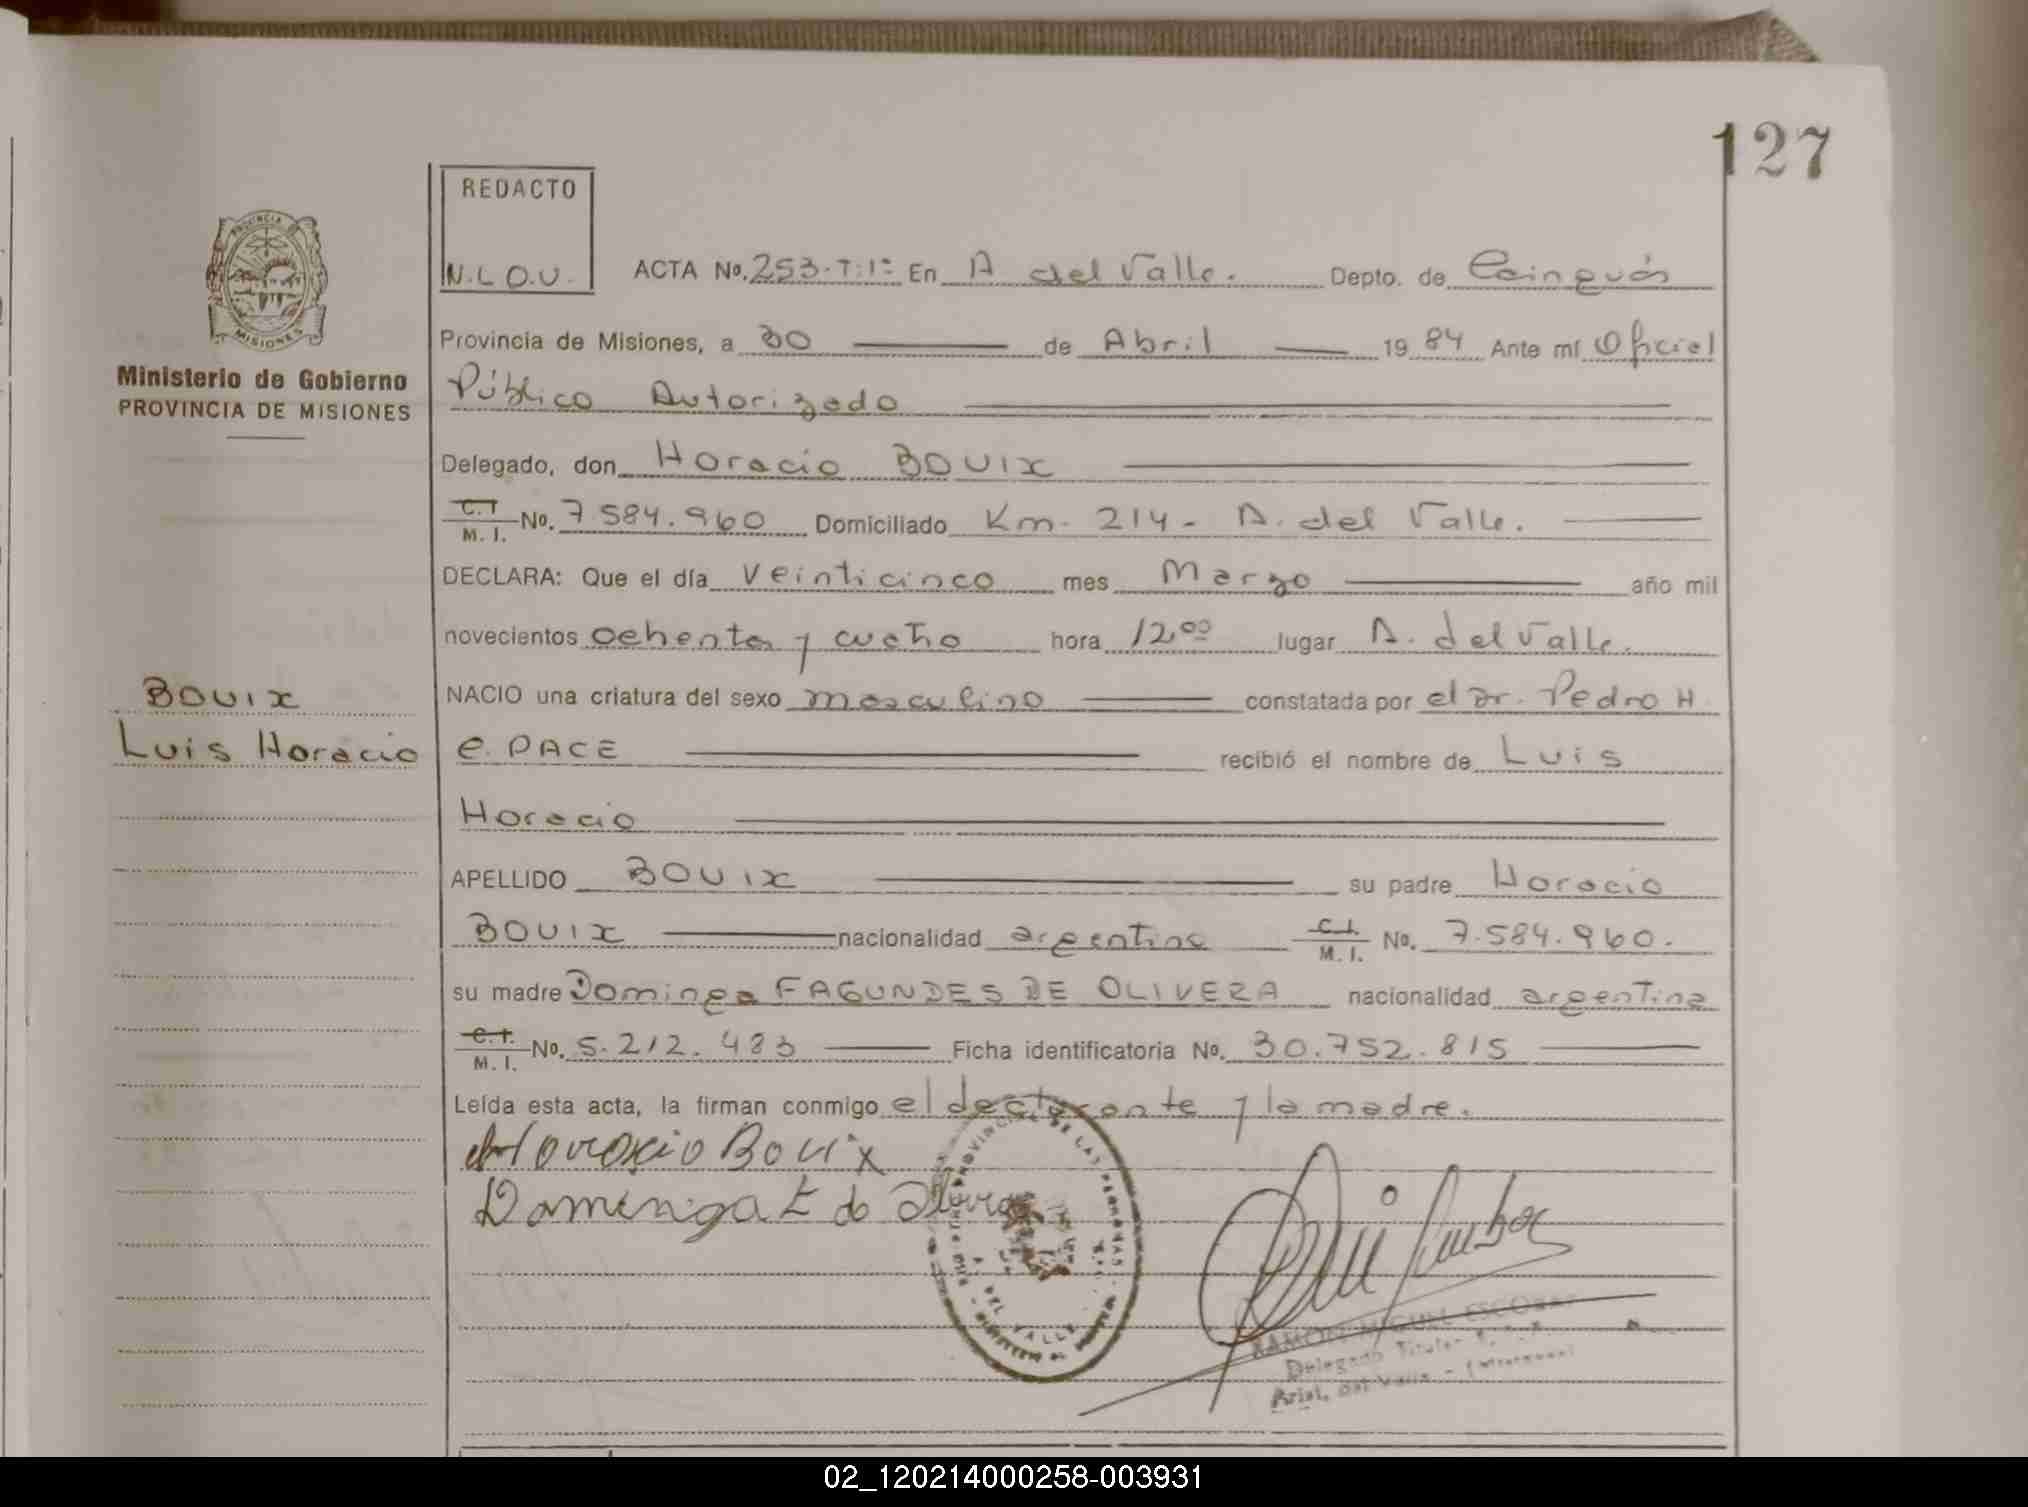 127
REDACTO
N.L.O.U.
PROVINCIA
MISIONES
Ministerio de Gobierno
PROVINCIA DE MISIONES
ACTA No. 253-T:1º En A del Valle. Depto. de Cainguás
Provincia de Misiones, a 30 de Abril 19 84 Ante mí Oficial
Público Autorizado
Delegado, don Horacio BOUIX
C.I. M. I. No. 7.584.960 Domiciliado Km. 214 - A. del Valle.
DECLARA: Que el día veinticinco mes Marzo año mil
novecientos ochenta y cuatro hora 12,00 lugar A. del Valle.
BOUIX
Luis Horacio
NACIO una criatura del sexo masculino constatada por el Dr. Pedro H.
e. PACE recibió el nombre de Luis
Horacio
APELLIDO BOUIX su padre Horacio
BOUIX nacionalidad argentina C.I. M. I. No. 7.584.960.
su madre Dominga FAGUNDES DE OLIVERA nacionalidad argentina
C.I. M. I. No. 5.212.483 Ficha identificatoria No. 30.752.815
Leída esta acta, la firman conmigo el declarante y la madre.
Horacio Bouix
Domenga F do
PROVINCIAL DE LAS PERSONAS
A. DEL VALLE
RAMON MIGUEL ESCOBAR
Delegado Titular
Arist. del Valle - (Misiones)
02_120214000258-003931